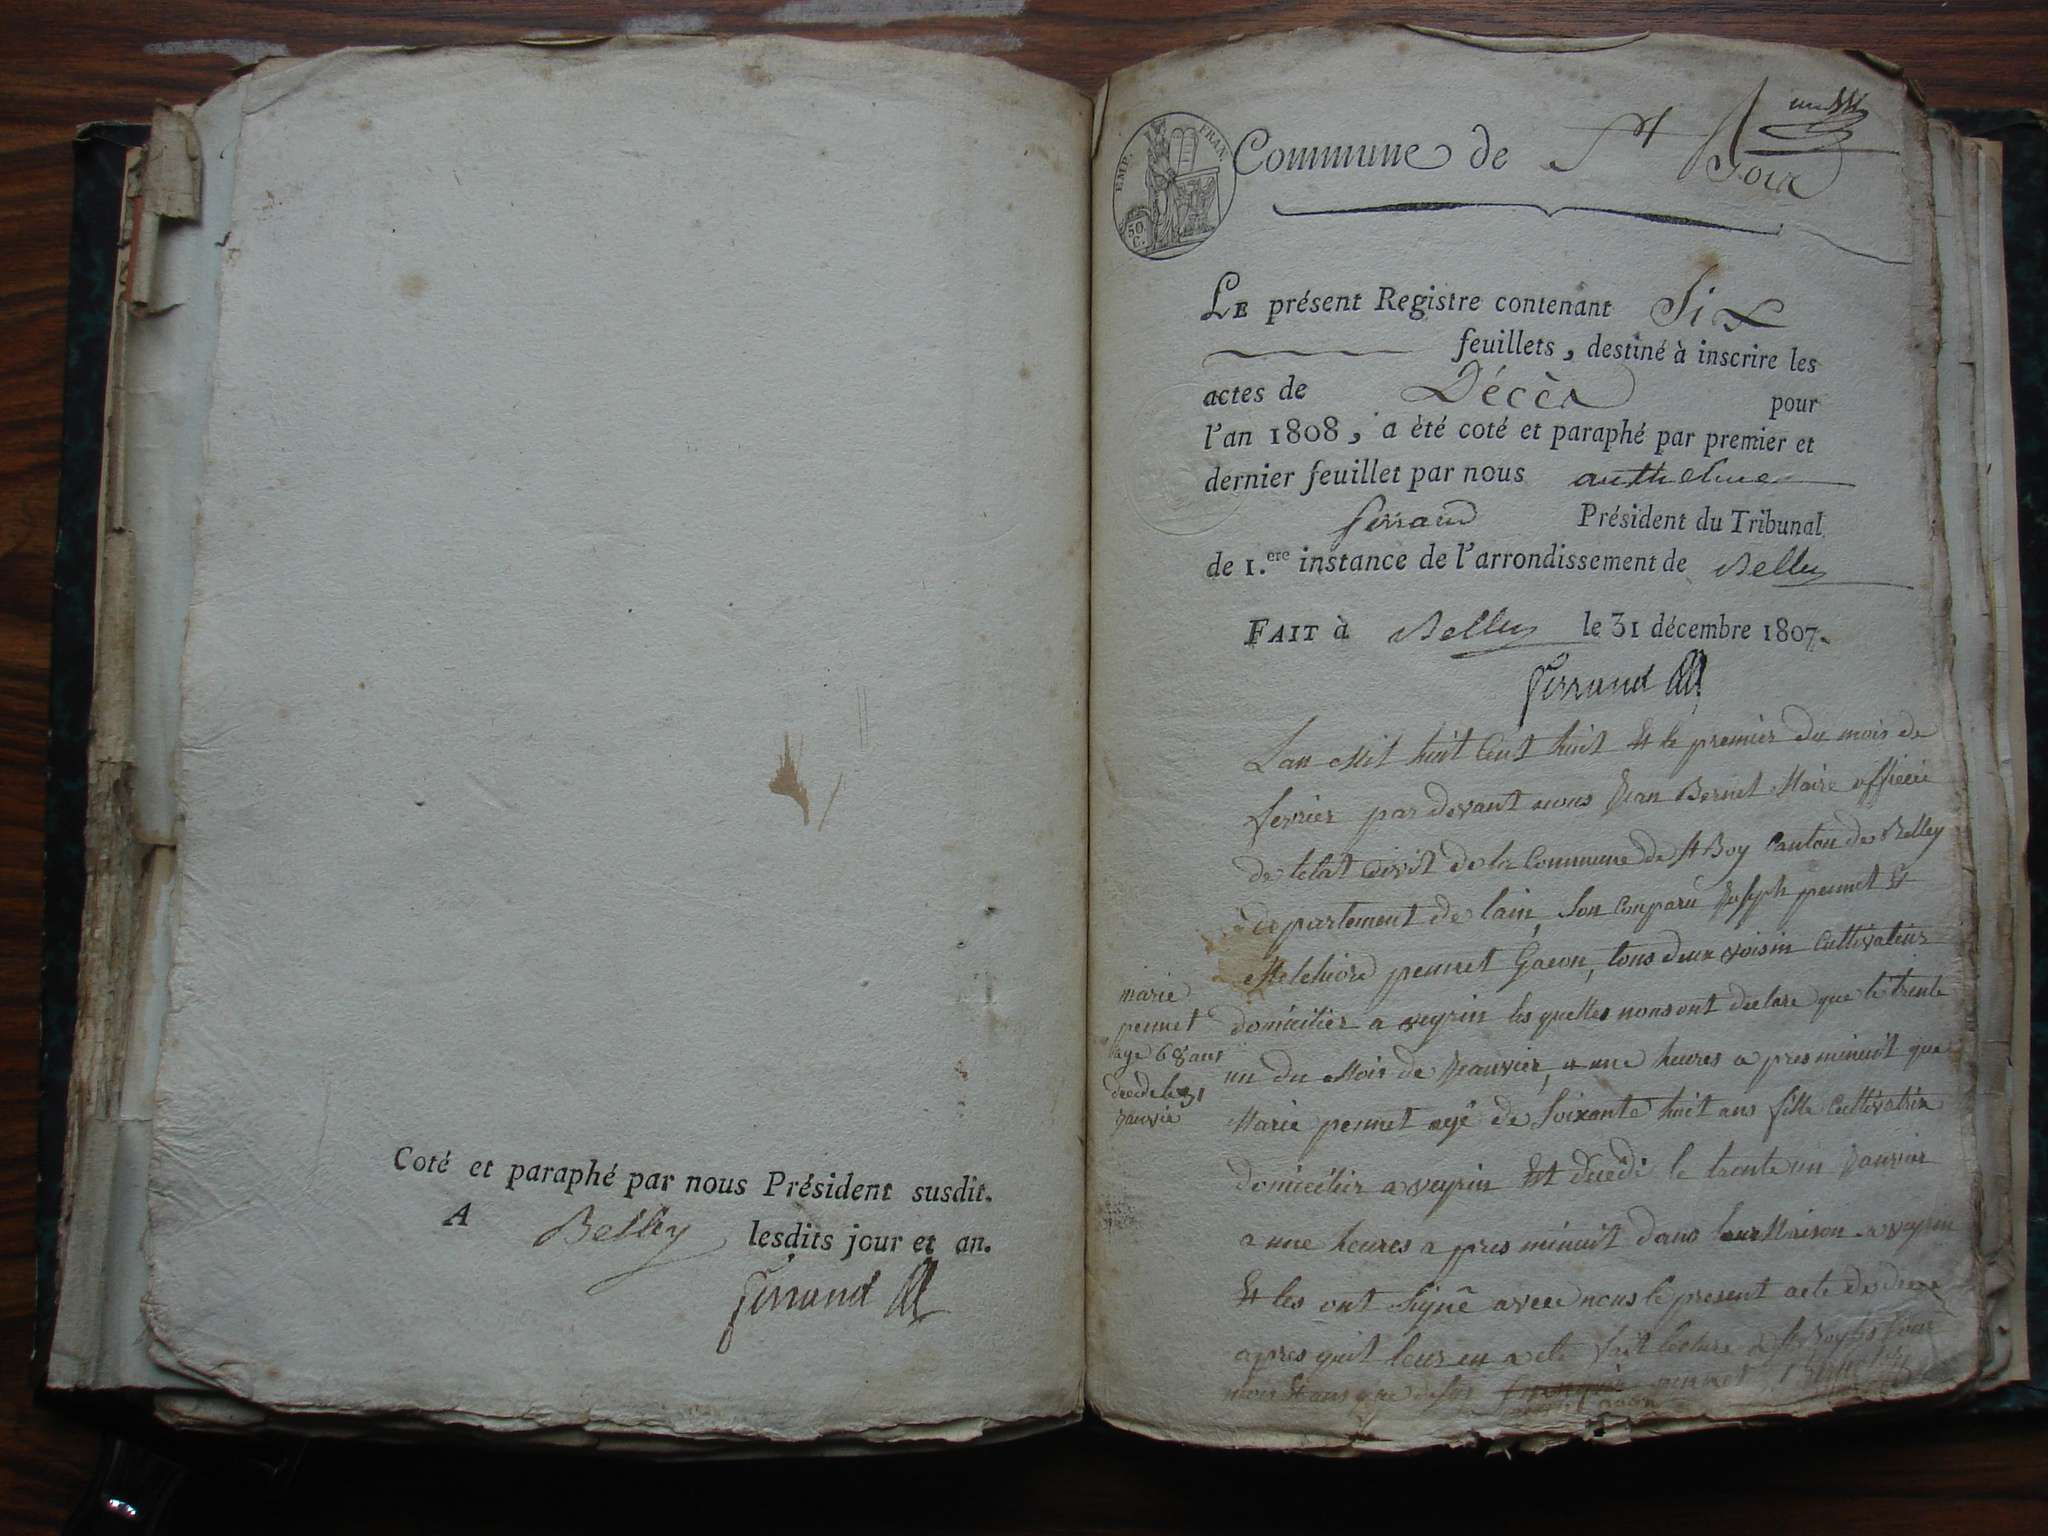 Coté et paraphé par nous Président susdit.
A Belley lesdits jour et an.
Ferrand
EMP. FRAN.
50 C.
Commune de St
Le présent Registre contenant Six
feuillets, destiné à inscrire les
actes de Décès pour
l'an 1808, a été coté et paraphé par premier et
dernier feuillet par nous anthelme
ferrand Président du Tribunal
de 1.ere instance de l'arrondissement de Belley
Fait à Belley le 31 décembre 1807.
Ferrand
Lan Mil huit Cent huit Et le premier du mois de
fevrier par devant nous Jean Bernet Maire officié
de letat Civil de la Commune de St Boy Canton de Belley
departement de lain, Son Conparu Joseph pennet Et
Melchiord pennet Gacon, tous deux voisin Cultivateur
domicilier a veyrin les quelles nons ont declare que le trente
un du Mois de Janvier, a une heures a pres minuit que
Marie pennet agé de Soixante huit ans fille Cultivatrix
domicilier a veyrin Et décédé le trente un Janvier
a une heures a pres minuit dans leur Maison a veyrin
Et les ont Signê avec nous le present acte de dece
apres quil leur en a eté fait lecture a St Boy les Jour
mois Et ans que desus pennet
marie
pennet
age 68 ans
decede le 31
janvié